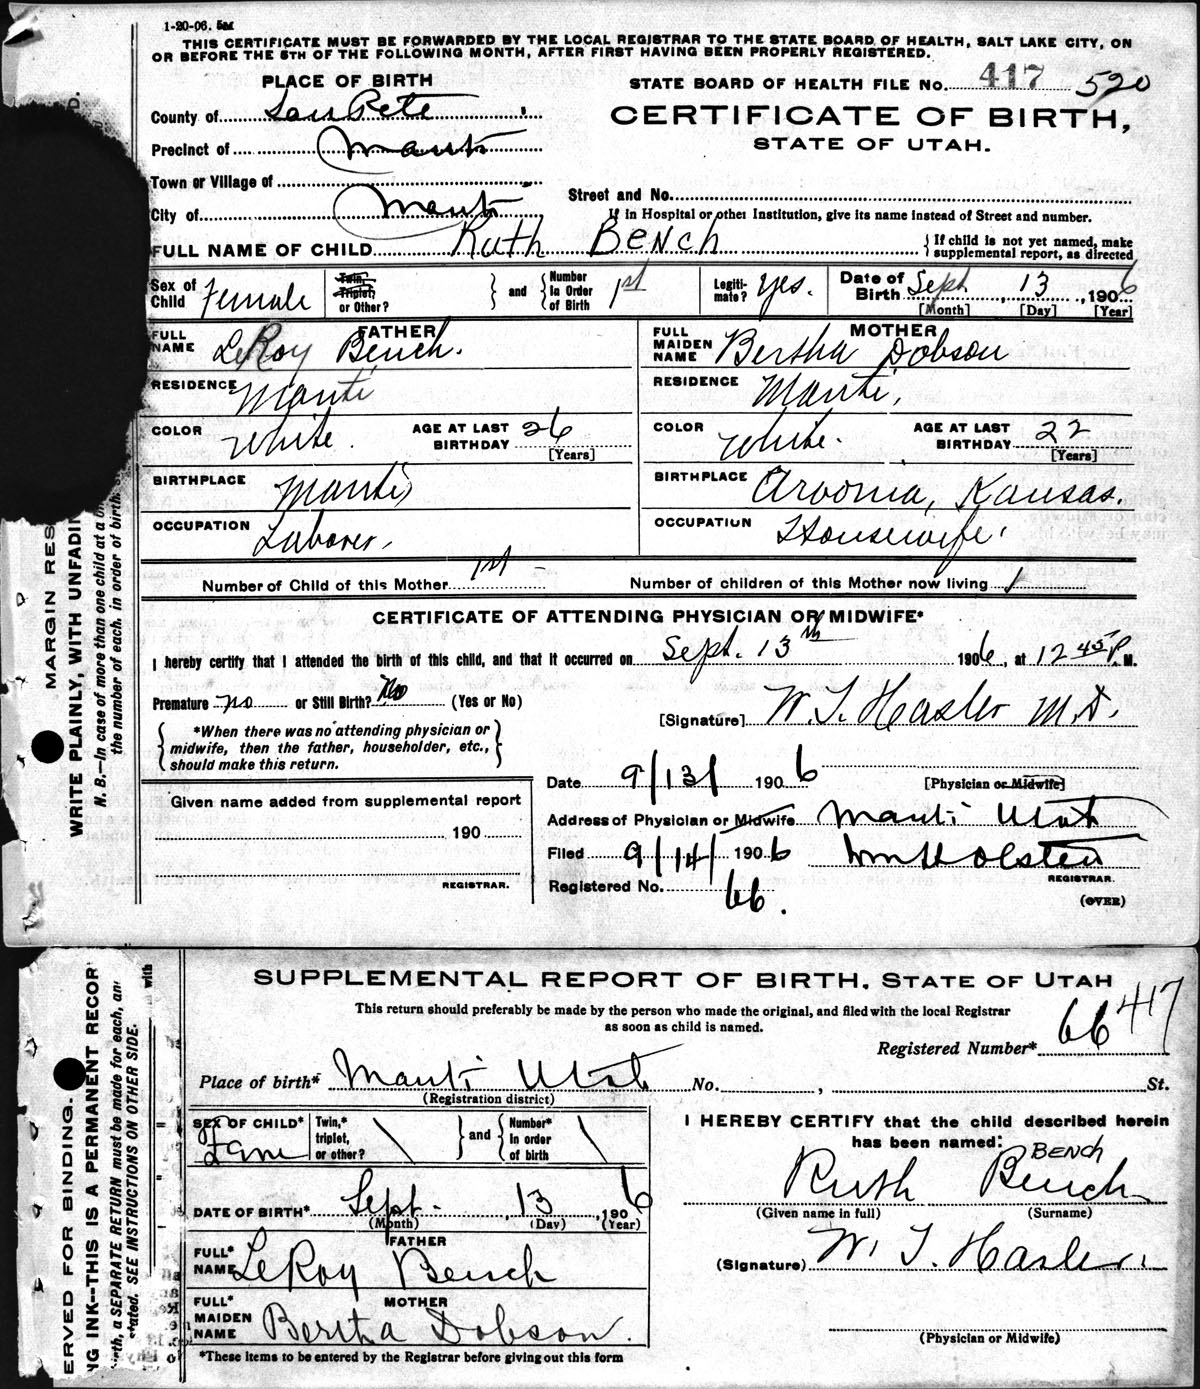 1-20-06. 5M
THIS CERTIFICATE MUST BE FORWARDED BY THE LOCAL REGISTRAR TO THE STATE BOARD OF HEALTH, SALT LAKE CITY, ON
OR BEFORE THE 5TH OF THE FOLLOWING MONTH, AFTER FIRST HAVING BEEN PROPERLY REGISTERED.
PLACE OF BIRTH
STATE BOARD OF HEALTH FILE No. 417 520
County of San Pete
CERTIFICATE OF BIRTH,
STATE OF UTAH.
Precinct of Manti
Town or Village of
Street and No.
City of Manti
If in Hospital or other Institution, give its name instead of Street and number.
FULL NAME OF CHILD Ruth Bench
{ If child is not yet named, make supplemental report, as directed
Sex of Child Female
Twin, Triplet, or Other? } and { Number in Order of Birth 1st
Legitimate? Yes.
Date of Birth Sept 13, 1906
[Month] [Day] [Year]
FATHER
FULL NAME LeRoy Bench.
MOTHER
FULL MAIDEN NAME Bertha Dobson
RESIDENCE Manti
RESIDENCE Manti,
COLOR White. AGE AT LAST BIRTHDAY 26 [Years]
COLOR White. AGE AT LAST BIRTHDAY 22 [Years]
BIRTHPLACE Manti
BIRTHPLACE Arvonia, Kansas.
OCCUPATION Laborer,
OCCUPATION Housewife.
Number of Child of this Mother 1st - Number of children of this Mother now living 1
CERTIFICATE OF ATTENDING PHYSICIAN OR MIDWIFE*
I hereby certify that I attended the birth of this child, and that it occurred on Sept. 13th 1906, at 12 45 P. M.
Premature no or Still Birth? No (Yes or No)
[Signature] W. T. Hasler M.D.
{ *When there was no attending physician or
midwife, then the father, householder, etc.,
should make this return. }
Date 9/13/ 1906 [Physician or Midwife]
Given name added from supplemental report
190
REGISTRAR.
Address of Physician or Midwife Manti Utah
Filed 9/14/ 1906 Wm Holsten
REGISTRAR.
Registered No. 66.
(OVER)
MARGIN RES
WRITE PLAINLY, WITH UNFADIN
N. B.—In case of more than one child at a
the number of each, in order of birth
SUPPLEMENTAL REPORT OF BIRTH, STATE OF UTAH
This return should preferably be made by the person who made the original, and filed with the local Registrar
as soon as child is named.
Registered Number* 66 417
Place of birth* Manti Utah No. , St.
(Registration district)
SEX OF CHILD*
Twin,* triplet, or other? } and { Number* in order of birth
I HEREBY CERTIFY that the child described herein
has been named:
BENCH
Ruth Bench
(Given name in full) (Surname)
DATE OF BIRTH* Sept. 13, 1906
(Month) (Day) (Year)
FATHER
FULL* NAME LeRoy Bench
(Signature) W. T. Hasler
MOTHER
FULL* MAIDEN NAME Bertha Dobson.
(Physician or Midwife)
*These items to be entered by the Registrar before giving out this form
ERVED FOR BINDING.
NG INK—THIS IS A PERMANENT RECOR
birth, a SEPARATE RETURN must be made for each, an
stated. SEE INSTRUCTIONS ON OTHER SIDE.
with